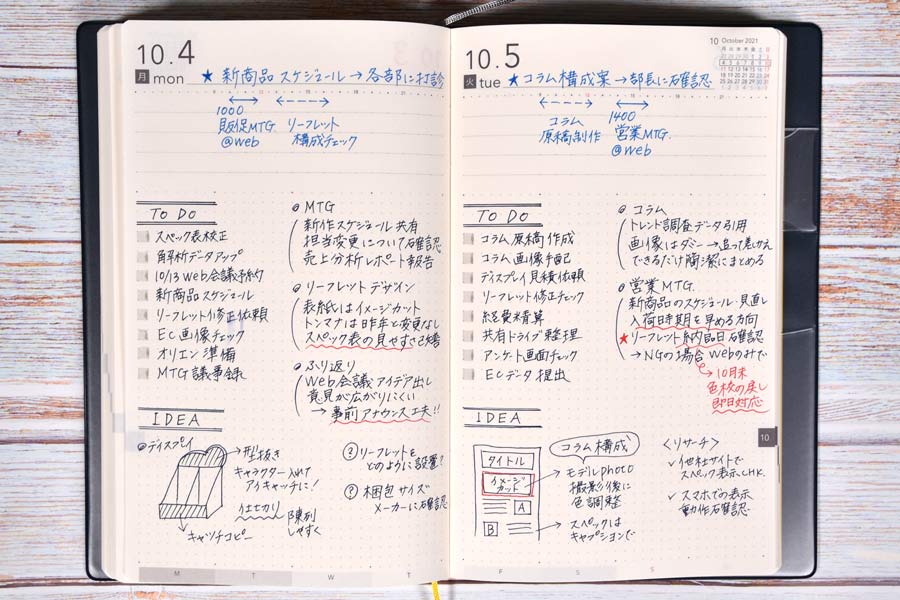 10.4
月 mon
★ 新商品 スケジュール → 各部に打診
1000
販促MTG
@web
リーフレット
構成チェック
TO DO
スペック表校正
解析データアップ
10/13 Web会議予約
新商品 スケジュール
リーフレット修正依頼
EC画像チェック
オリエン準備
MTG議事録
MTG
新作スケジュール 共有
担当変更について確認
売上分析レポート報告
リーフレットデザイン
表紙はイメージカット
トンマナは昨年と変更なし
スペック表の見やすさ改善
ふり返り
Web会議アイデア出し
意見が広がりにくい
→ 事前アナウンス工夫!!
IDEA
ディスプレイ
→型抜き
キャラクター入れて
アイキャッチに!
陳列
しやすく
キャッチコピー
? リーフレットを
どのように設置?
? 梱包サイズ
メーカーに確認
M T W T
10.5
火 tue
★ コラム構成案 → 部長に確認
10 October 2021
コラム
原稿制作
1400
営業MTG
@web
TO DO
コラム原稿作成
コラム画像手配
ディスプレイ見積依頼
リーフレット修正チェック
経費精算
共有ドライブ整理
アンケート画面チェック
ECデータ提出
コラム
トレンド調査データ引用
画像はダミー → 追って差しかえ
できるだけ簡潔にまとめる
営業MTG
新商品のスケジュール見直し
入荷時期を早める方向
★リーフレット納品日確認
→NGの場合Webのみで
→10月末
色校の戻し
即日対応
IDEA
コラム構成
タイトル
イメージ
カット
A
B
モデルphoto
撮影後に
色調整
スペックは
キャプションで
<リサーチ>
✓ 他社サイトで
スペック表示CHK.
✓ スマホでの表示
動作確認
10
F S S